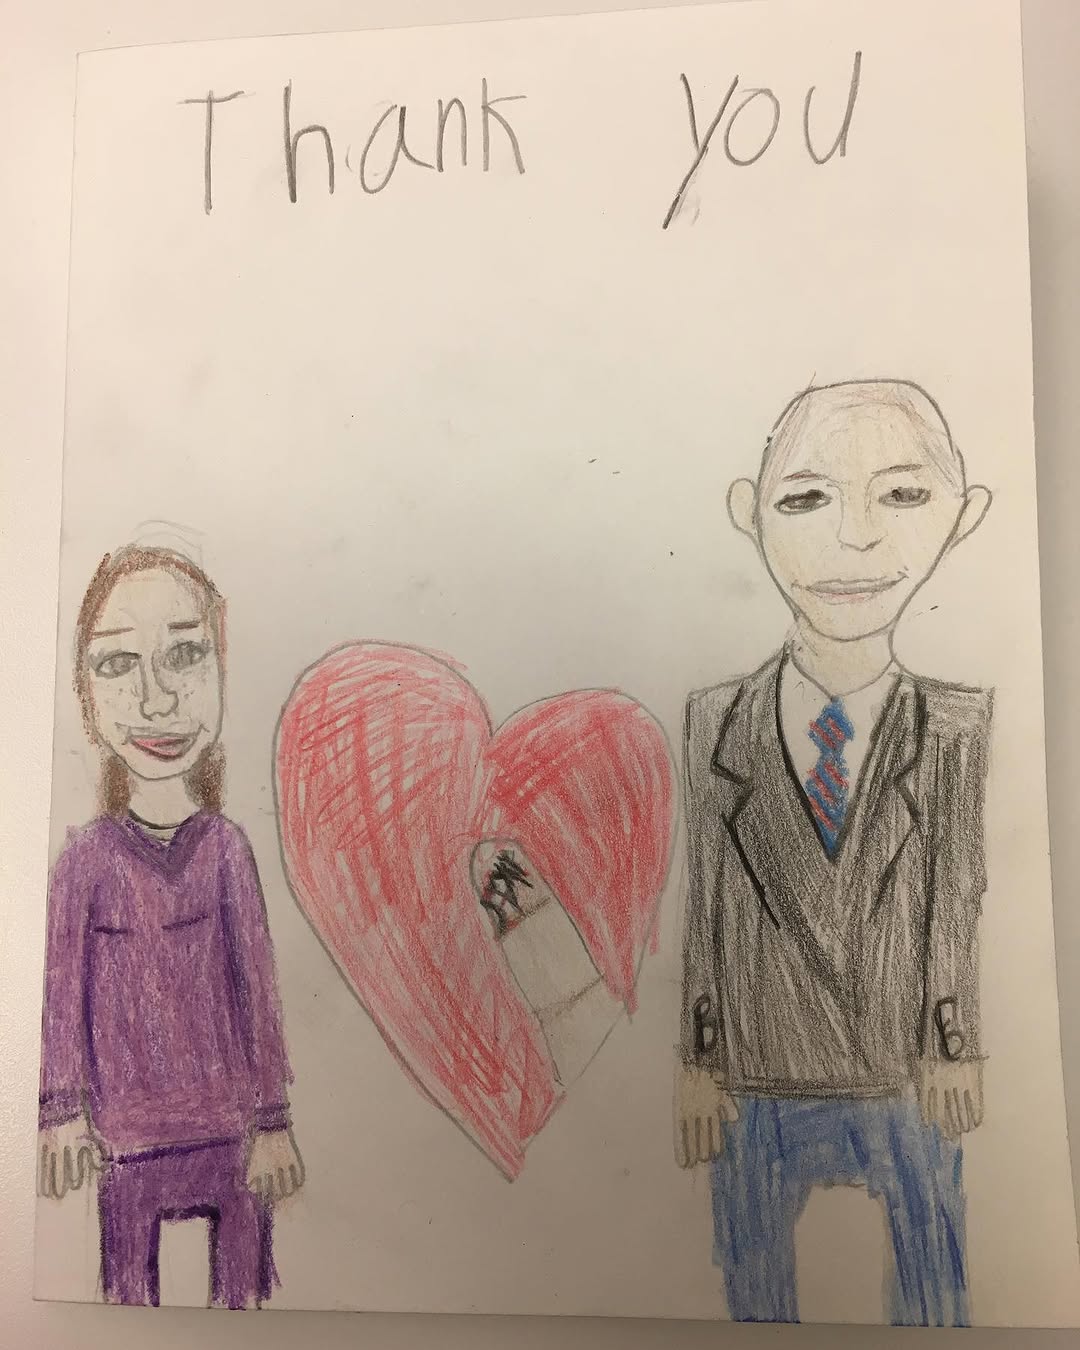 Thank you
B
B